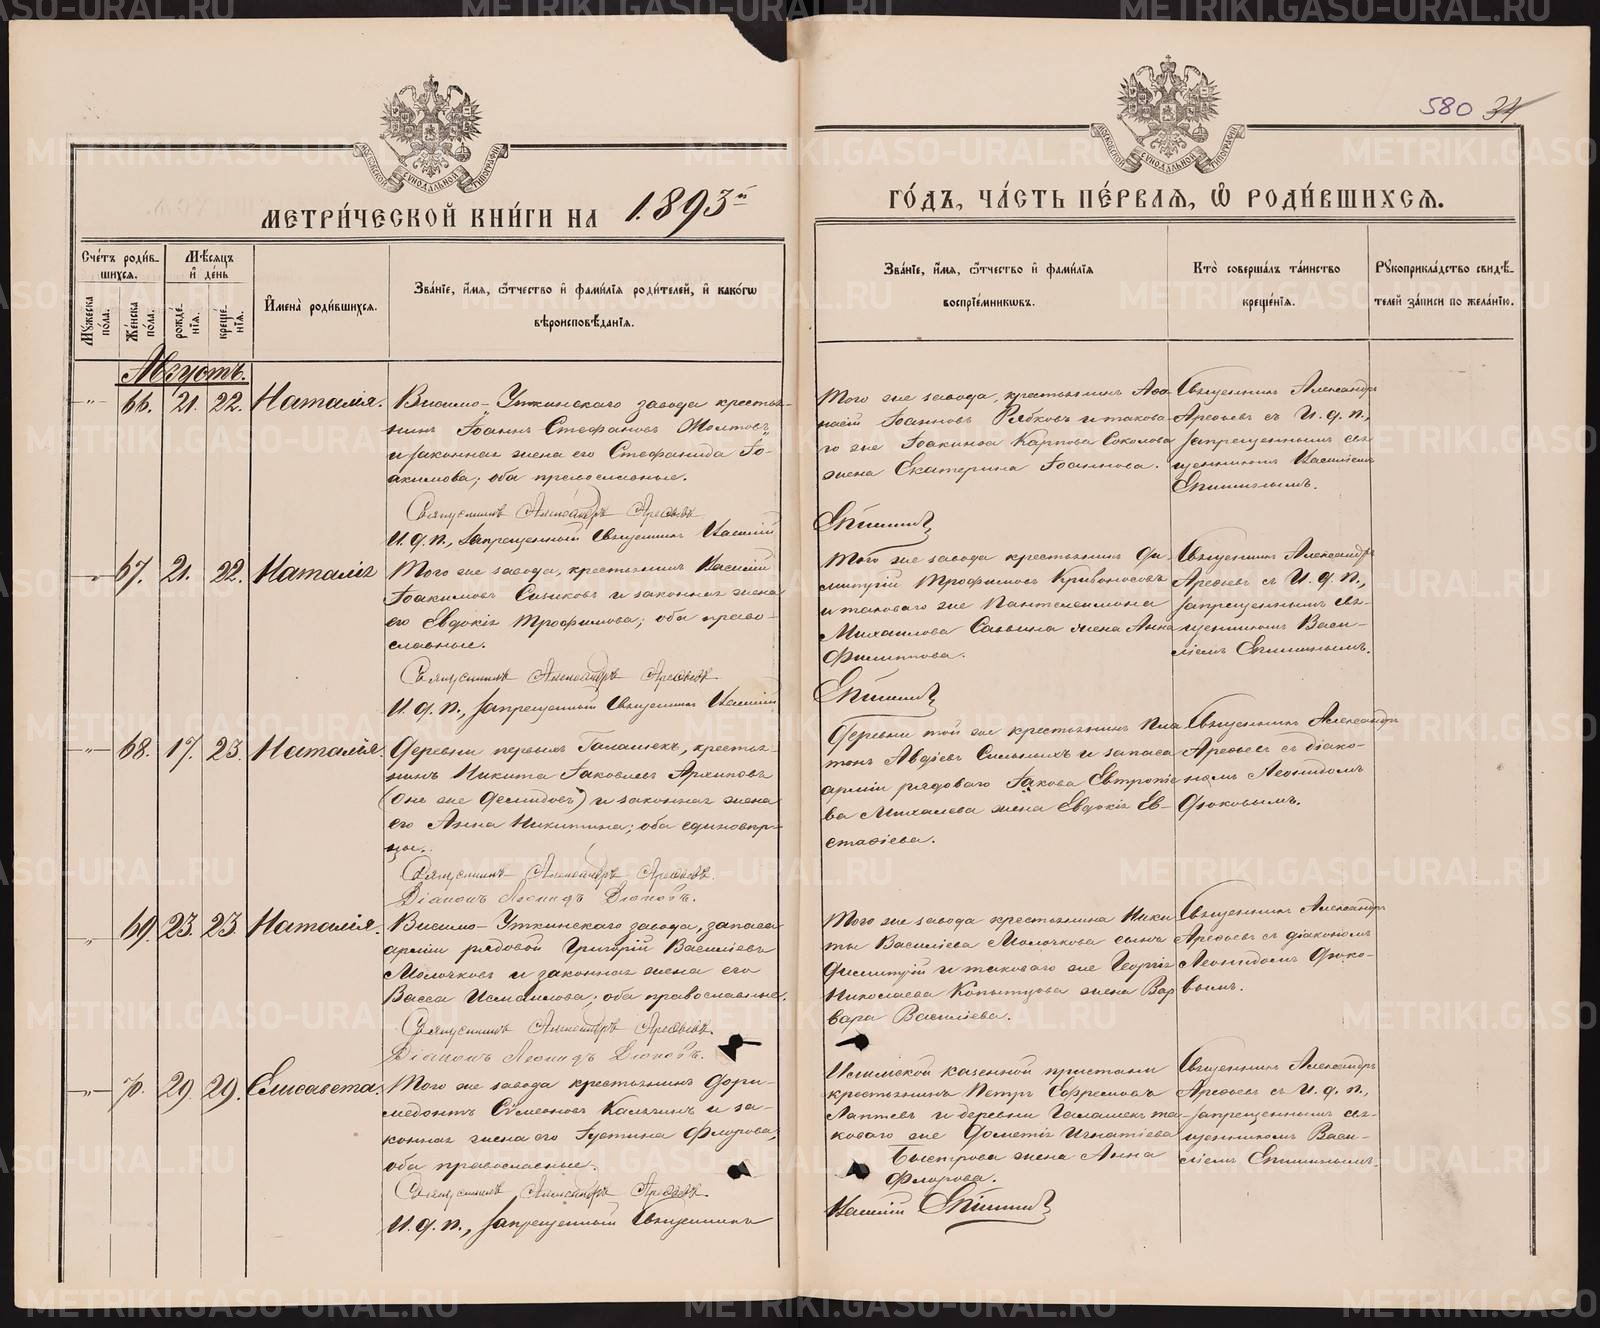 580 34.
МЕТРИ́ЧЕСКОЙ КНИ́ГИ НА 1893й
ГО́ДЪ, ЧА́СТЬ ПЕ́РВАЯ, Ѡ҆ РОДИ́ВШИХСЯ.
Сче́тъ роди́в-
шихся.
Му́жеска по́ла.
Же́нска по́ла.
Мѣ́сяцъ
и҆ де́нь
рожде́-
нїя.
креще́-
нїя.
И҆мена̀ роди́вшихся.
Зва́нїе, и҆́мя, ѻ҆́тчество и҆ фами́лїя роди́телей, и҆ како́гѡ
вѣроисповѣ́данїя.
Зва́нїе, и҆́мя, ѻ҆́тчество и҆ фами́лїя
воспрїе́мникѡвъ.
Кто̀ соверша́лъ та́инство
креще́нїя.
Рꙋкоприкла́дство свидѣ́-
телей за́писи по жела́нїю.
Августъ.
-"- 66. 21. 22. Наталія.
Висимо-Уткинскаго завода крестья-
нинъ Іоаннъ Стефановъ Желтовъ
и законная жена его Стефанида Іо-
акимова; оба православные.
Священникъ Александръ Арефьевъ
И. д. п., запрещенный священникъ Василій
Того же завода, крестьянинъ Афа-
насій Іоанновъ Рябковъ и такова-
го же Іоакинфа Карпова Соколова
жена Екатерина Іоаннова.
Епишинъ
Священникъ Александръ
Арефьевъ съ И. д. п.,
запрещеннымъ свя-
щенникомъ Василіемъ
Епишинымъ.
-"- 67. 21. 22. Наталія
Того же завода, крестьянинъ Василій
Іоакимовъ Сизиковъ и законная жена
его Евдокія Трофимова; оба право-
славные.
Священникъ Александръ Арефьевъ
И. д. п., запрещенный священникъ Василій
Того же завода крестьянинъ Ди-
митрій Трофимовъ Кривоносовъ
и таковаго же Пантелеимона
Михаилова Савина жена Анна
Филиппова.
Епишинъ
Священникъ Александръ
Арефьевъ съ И. д. п.,
запрещеннымъ свя-
щенникомъ Васи-
ліемъ Епишинымъ.
-"- 68. 17. 23. Наталія.
Деревни первыхъ Галашекъ, крестья-
нинъ Никита Іаковлевъ Архиповъ
(онъ же Демидовъ) и законная жена
его Анна Никитина; оба единовѣр-
цы.
Священникъ Александръ Арефьевъ.
Діаконъ Леонидъ Дюковъ.
Деревни той же крестьянинъ Пла-
тонъ Авдіевъ Сильныхъ и запаса
арміи рядоваго Іакова Евтропіе-
ва Михалева жена Евдокія Ев-
стафіева.
Священникъ Александръ
Арефьевъ съ діако-
номъ Леонидомъ
Дюковымъ.
-"- 69. 23. 23. Наталія.
Висимо-Уткинскаго завода, запаса
арміи рядовой Григорій Василіевъ
Молочковъ и законная жена его
Васса Исмаилова; оба православные.
Священникъ Александръ Арефьевъ.
Діаконъ Леонидъ Дюковъ.
Того же завода крестьянина Ники-
ты Василіева Молочкова сынъ
Димитрій и таковаго же Георгія
Николаева Копытцова жена Вар-
вара Василіева.
Священникъ Александръ
Арефьевъ съ діакономъ
Леонидомъ Дюко-
вымъ.
-"- 70. 29. 29. Елисавета.
Того же завода крестьянинъ Дори-
медонтъ Сѵмеоновъ Калачинъ и за-
конная жена его Іустина Флорова,
оба православные.
Священникъ Александръ Арефьевъ
И. д. п., запрещенный священникъ
Илимской казенной пристани
крестьянинъ Петръ Ефремовъ
Лаптевъ и деревни Галашекъ та-
коваго же Дометія Игнатіева
Быстрова жена Анна
Флорова.
Василій Епишинъ
Священникъ Александръ
Арефьевъ съ И. д. п.,
запрещеннымъ свя-
щенникомъ Васи-
ліемъ Епишинымъ.
METRIKI.GASO-URAL.RU